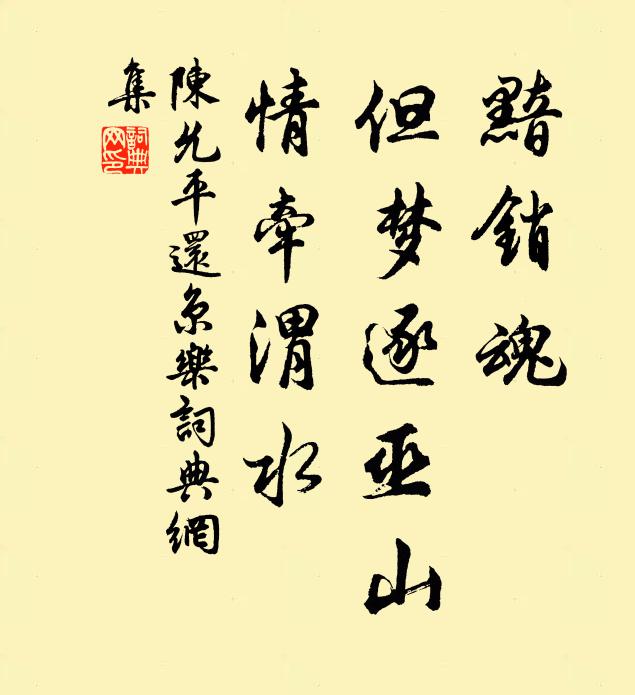 黯銷魂
但梦逐巫山
情牽渭水
陳允平還京樂詞典網
集
詞典
网印